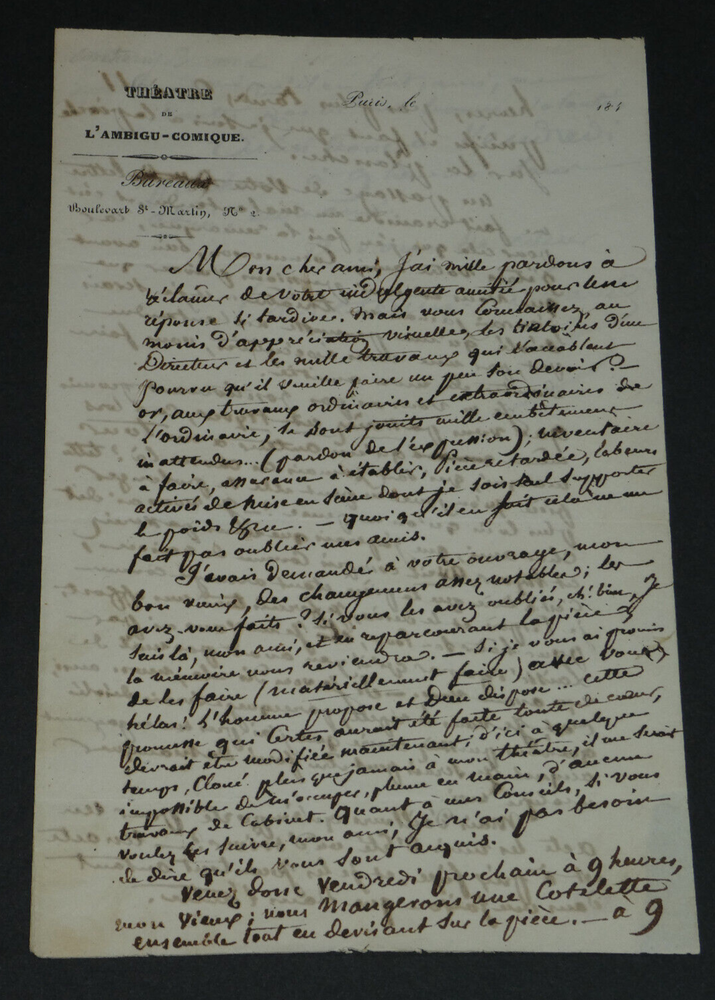 THÉATRE
DE
L'AMBIGU-COMIQUE.
Bureaux
Boulevart St-Martin, No 2.
Paris, le 184
Mon cher ami, j'ai mille pardons à
réclamer de votre indulgente amitié pour une
réponse si tardive. Mais vous connaissez, au
moins d'appréciation visuelle, les d'un
Directeur et les mille travaux qui l'accablent
pourvu qu'il veuille faire un peu son devoir?—
or, aux travaux ordinaires et extraordinaires de
l'ordinaire, se sont joints mille embêtemens
inattendus... (pardon de l'expression); inventaire
à faire, à établir, pièce retardée, labeurs
actives de mise en scène dont je sais seul supporter
le poids — quoiqu'il en soit cela ne me
fait pas oublier mes amis.
J'avais demandé à votre ouvrage, mon
bon vieux, des changemens assez notables; les
avez-vous faits? si vous les avez oubliés, eh! bien, je
suis là, mon ami, et en reparcourant la pièce
la mémoire nous reviendra. — si je vous ai promis
de les faire (matériellement faire) avec vous,
hélas! l'homme propose et Dieu dispose... cette
promesse qui certes aurait été faite toute de cœur,
devrait être modifiée maintenant; d'ici à quelque
temps, cloué plus que jamais à mon théâtre, il me serait
impossible de m'occuper, plume en main, d'aucun
travaux de cabinet. Quant à mes conseils, si vous
voulez les suivre, mon ami, je n'ai pas besoin
de dire qu'ils vous sont acquis.
venez donc vendredi prochain à 9 heures,
mon vieux; nous mangerons une cotelette
ensemble tout en devisant sur la pièce. — à 9